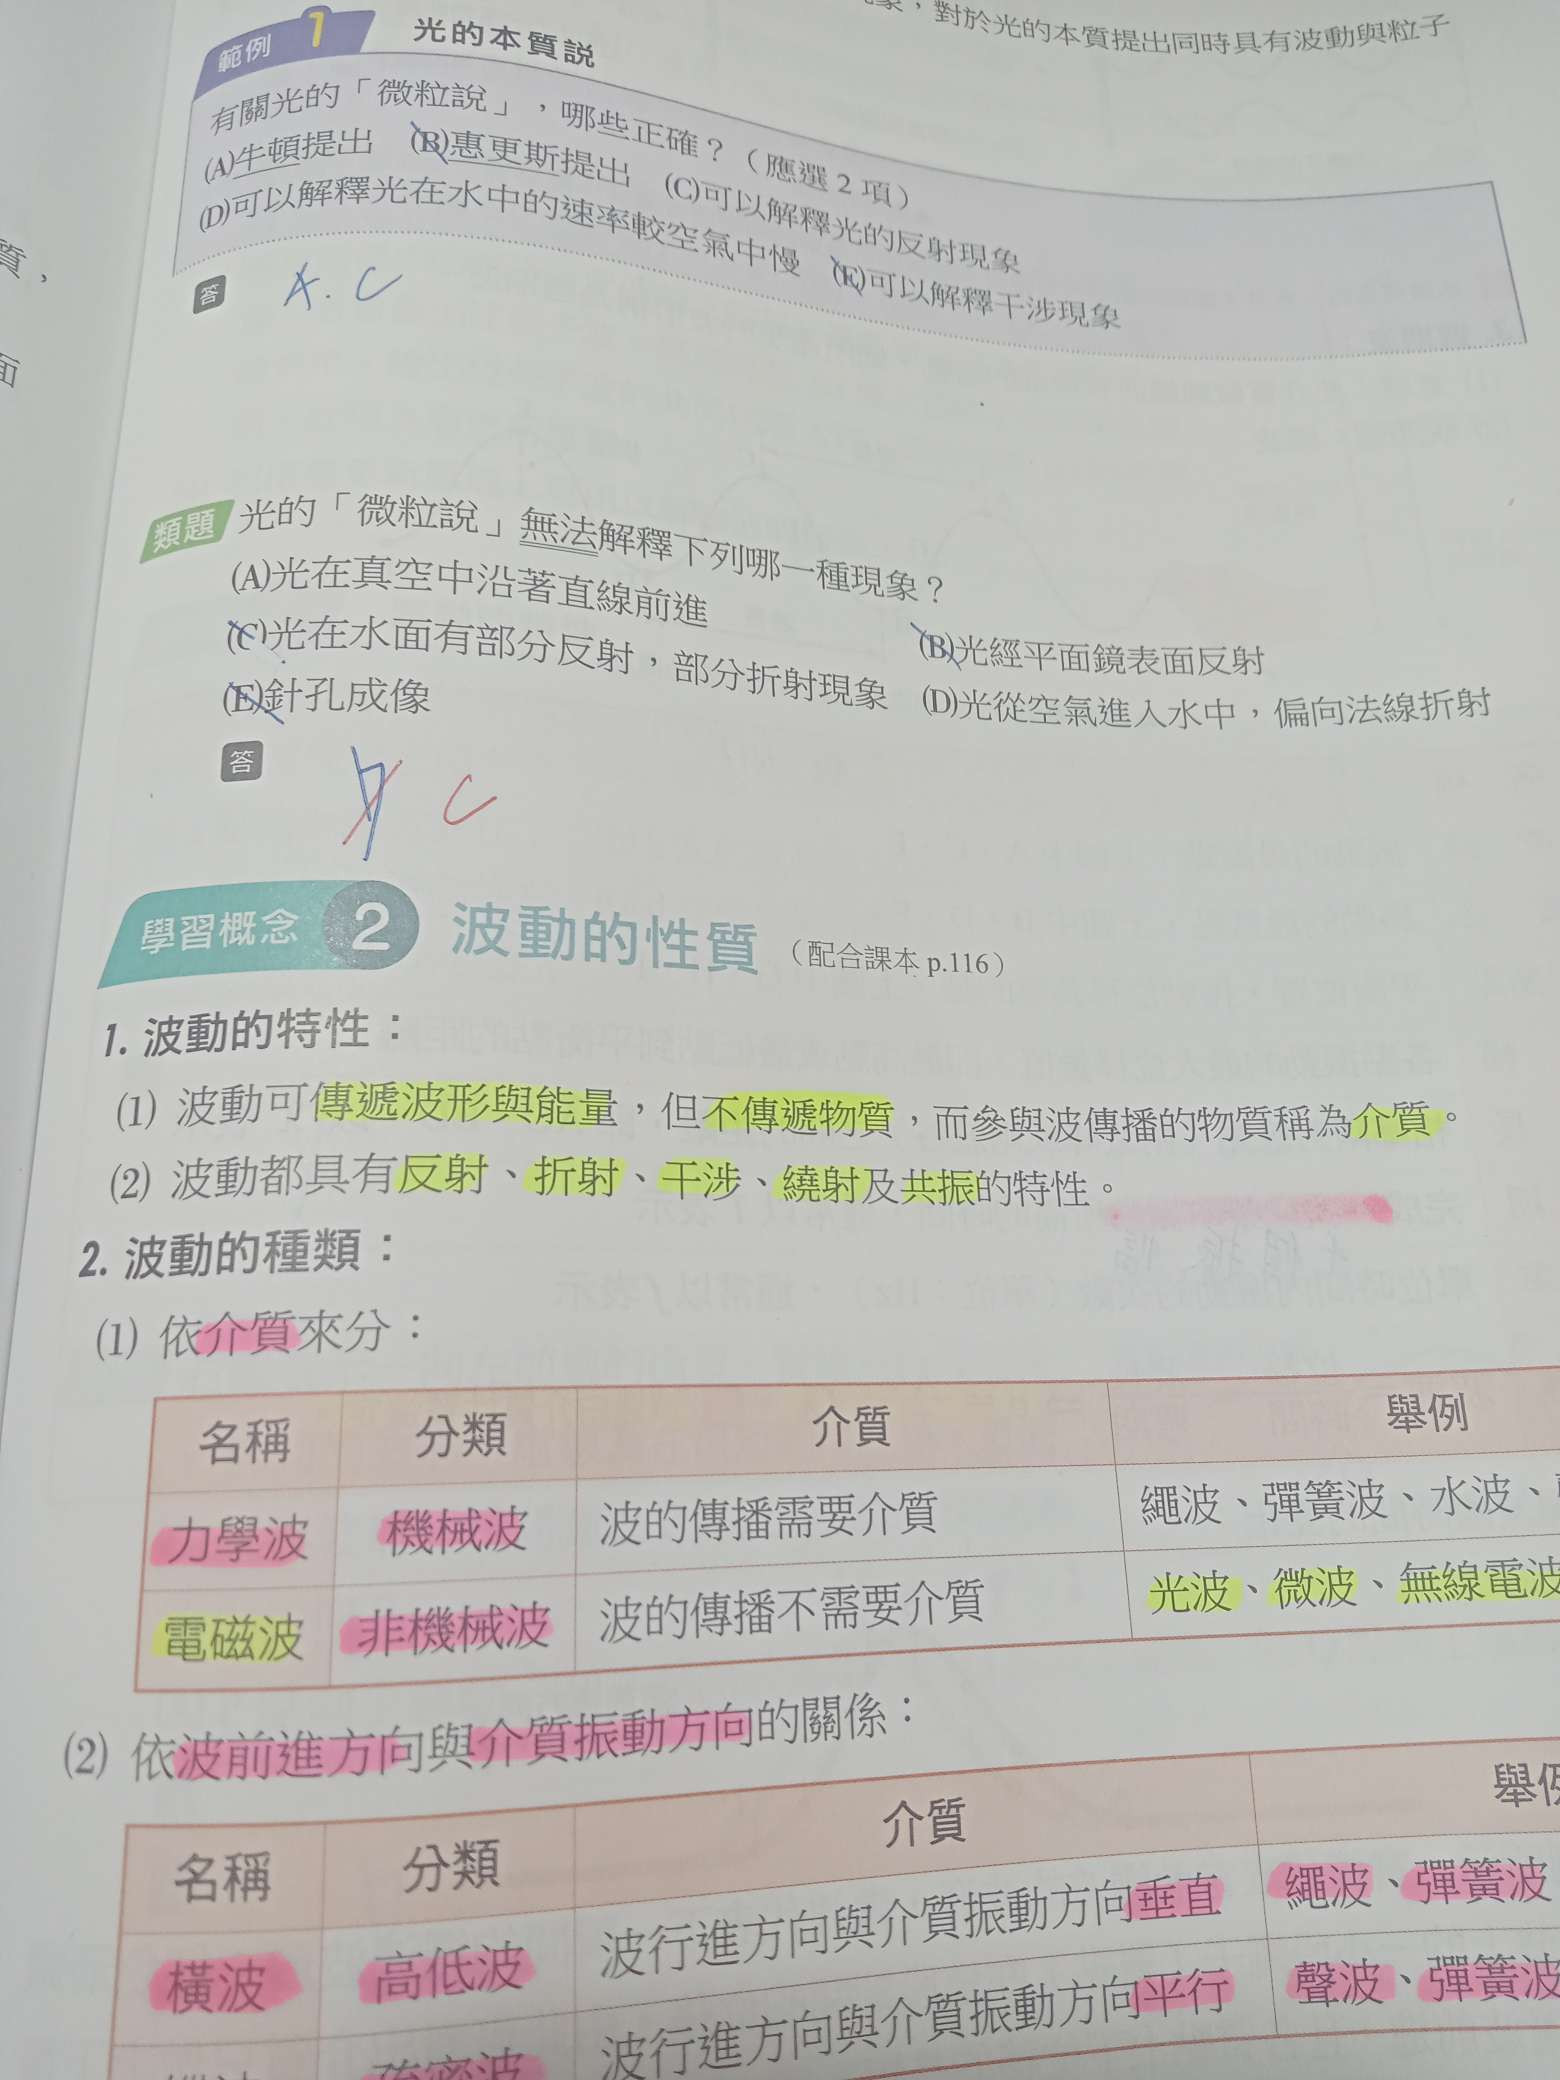 對於光的本質提出同時具有波動與粒子
範例 1 光的本質說
有關光的「微粒說」，哪些正確？（應選 2 項）
(A)牛頓提出 (B)惠更斯提出 (C)可以解釋光的反射現象
(D)可以解釋光在水中的速率較空氣中慢 (E)可以解釋干涉現象
答 A. C
質，
面
類題 光的「微粒說」無法解釋下列哪一種現象？
(A)光在真空中沿著直線前進
(B)光經平面鏡表面反射
(C)光在水面有部分反射，部分折射現象
(D)光從空氣進入水中，偏向法線折射
(E)針孔成像
答 C
學習概念 2 波動的性質（配合課本 p.116）
1. 波動的特性：
(1) 波動可傳遞波形與能量，但不傳遞物質，而參與波傳播的物質稱為介質。
(2) 波動都具有反射、折射、干涉、繞射及共振的特性。
2. 波動的種類：
(1) 依介質來分：
名稱 分類 介質 舉例
力學波 機械波 波的傳播需要介質 繩波、彈簧波、水波、
電磁波 非機械波 波的傳播不需要介質 光波、微波、無線電波
(2) 依波前進方向與介質振動方向的關係：
名稱 分類 介質 舉例
橫波 高低波 波行進方向與介質振動方向垂直 繩波、彈簧波
疏密波 波行進方向與介質振動方向平行 聲波、彈簧波